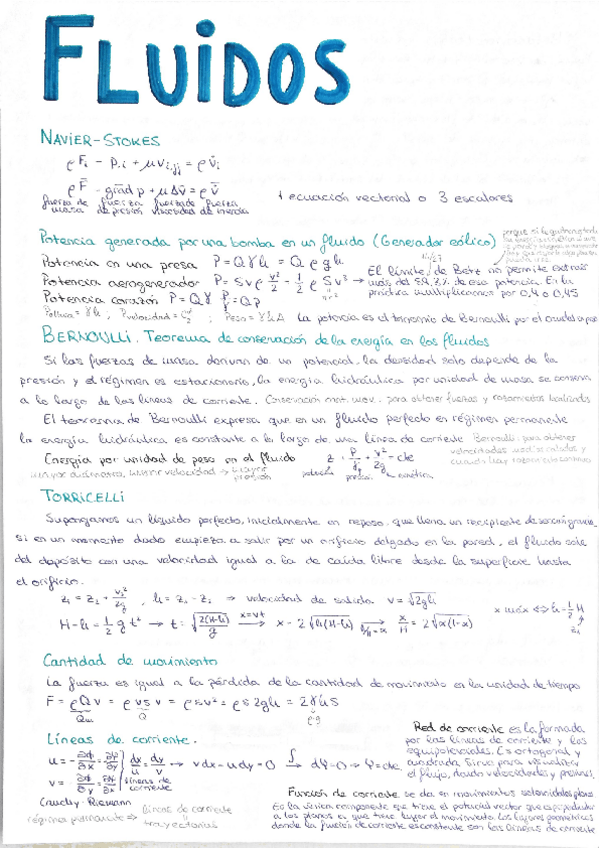 FLUIDOS
NAVIER-STOKES
ρFi - p,i + μvi,jj = ρv̇i
ρF̄ - grad p + μΔv̄ = ρv̄
fuerza de fuerza fuerza de fuerza
masa de presión viscosidad de inercia
1 ecuación vectorial o 3 escalares
Potencia generada por una bomba en un fluido (Generador eólico)
Potencia en una presa P = Qγh = Q ρgh
Potencia aerogenerador P = Svρ v²/2 = 1/2 ρSv³ → El límite de Betz no permite extraer
más del 59,2% de esa potencia. En la
práctica multiplicamos por 0,4 o 0,45
Potencia corazón P = Qγ p/γ = Qp
La potencia es el trinomio de Bernoulli por el caudal
BERNOULLI. Teorema de conservación de la energía en los fluidos
Si las fuerzas de masa derivan de un potencial, la densidad solo depende de la
presión y el régimen es estacionario, la energía hidráulica por unidad de masa se conserva
a lo largo de las líneas de corriente. Conservación mot. mov.: para obtener fuerzas y
El teorema de Bernoulli expresa que en un fluido perfecto en régimen permanente
la energía hidráulica es constante a lo largo de una línea de corriente Bernoulli: para obtener
velocidades
Energía por unidad de peso en el fluido z + p/γ + v²/2g = cte
menor diámetro, mayor velocidad →
presión
cinética
TORRICELLI
Supongamos un líquido perfecto, inicialmente en reposo, que llena un recipiente de
si en un momento dado empieza a salir por un orificio delgado en la pared, el fluido sale
del depósito con una velocidad igual a la de caída libre desde la superficie hasta
el orificio.
z₁ = z₂ + v₂²/2g, h = z₁ - z₂ → velocidad de salida v = √2gh
H-h = 1/2 g t² → t = √2(H-h)/g x=vt → x = 2√h(H-h) → x/H = 2√α(1-α)
x máx ⇔ h = 1/2 H
Cantidad de movimiento
La fuerza es igual a la pérdida de la cantidad de movimiento en la unidad de tiempo
F = ρQv = ρvSv = ρSv² = ρS2gh = 2γhS
Líneas de corriente.
u = -∂Φ/∂x = ∂Ψ/∂y
v = ∂Φ/∂y
dx/u = dy/v → vdx - udy = 0 → dΨ = 0 → Ψ = cte
líneas de
corriente
Cauchy-Riemann
régimen permanente ⇒ líneas de corriente
trayectorias
Red de corriente es la formada
por las líneas de corriente y las
equipotenciales. Es ortogonal y
cuadrada. Sirve para visualizar
el flujo, dando velocidades y presiones.
Función de corriente se da en movimientos solenoidales planos
Es la única componente que tiene el potencial vector que es perpendicular
a los planos en que tiene lugar el movimiento. Los lugares geométricos
donde la función de corriente es constante son las líneas de corriente